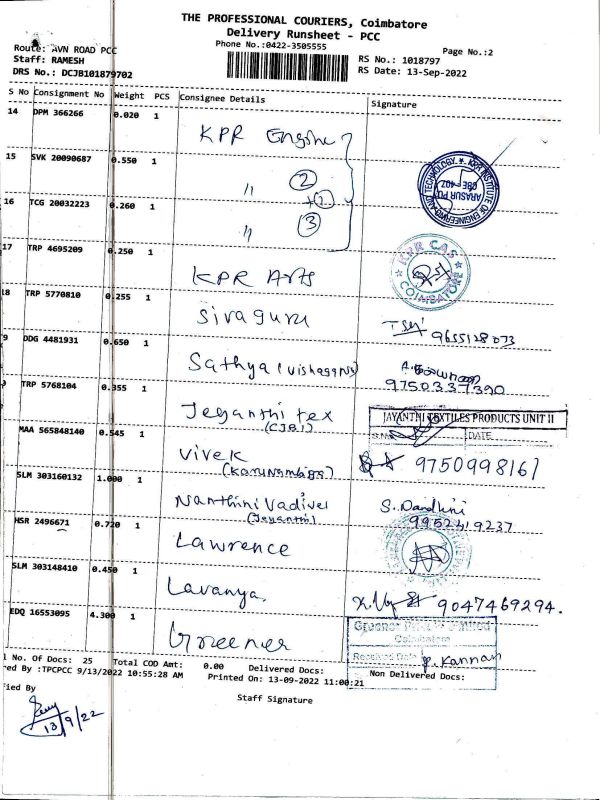 THE PROFESSIONAL COURIERS, Coimbatore
Delivery Runsheet - PCC
Phone No.:0422-3505555
Page No.:2
Route: AVN ROAD PCC
Staff: RAMESH
DRS No.: DCJB101879702
RS No.: 1018797
RS Date: 13-Sep-2022
S No Consignment No Weight PCS Consignee Details Signature
14 DPM 366266 0.020 1 KPR Engine
15 SVK 20090687 0.550 1 〃 ②
16 TCG 20032223 0.260 1 〃 ③
KPR INSTITUTE OF ENGINEERING AND TECHNOLOGY
ARASUR PO
CBE - 407
17 TRP 4695209 0.250 1 KPR Arts
KPR CAS
COIMBATORE
18 TRP 5770810 0.255 1 Sivaguru 9655128073
9 DDG 4481931 0.650 1 Sathya 9750337390
TRP 5768104 0.355 1 Jeyanthi tex
(CJB1)
JAYANTHI TEXTILES PRODUCTS UNIT II
S.No. DATE
MAA 565848140 0.545 1 Vivek 9750998167
SLM 303160132 1.000 1 Nanthini Vadivel
(Jeyanthi)
9952419237
HSR 2496671 0.720 1 Lawrence
SLM 303148410 0.450 1 Lavanya. 9047469294.
EDQ 16553095 4.300 1 Greener
Coimbatore
Received Date
P. Kannan
l No. Of Docs: 25 Total COD Amt: 0.00 Delivered Docs: Non Delivered Docs:
red By :TPCPCC 9/13/2022 10:55:28 AM Printed On: 13-09-2022 11:00:21
fied By
Staff Signature
13/9/22